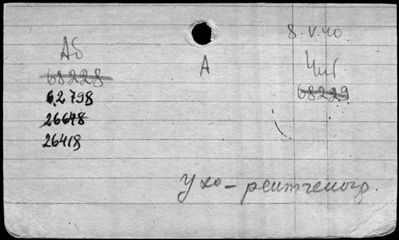 8.V.40.
Аб
А
Чит.
68228
68229
62798
26648
26418
Ухо – рентгеногр.